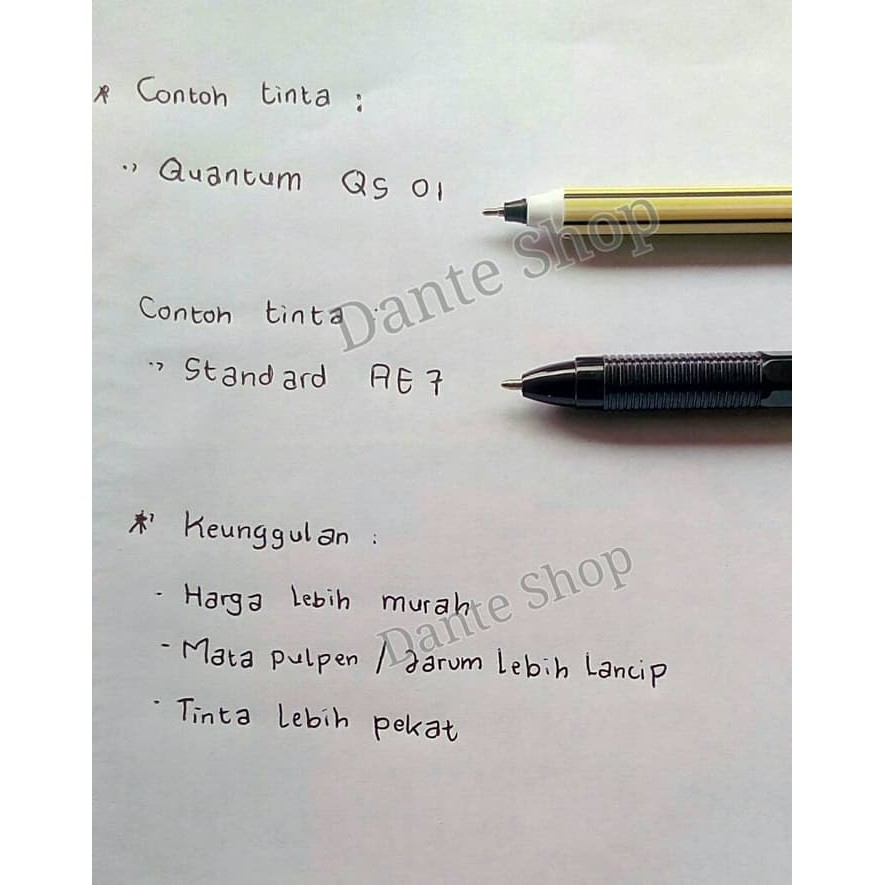 * Contoh tinta :
-> Quantum QS 01
Contoh tinta :
-> Standard AE7
* Keunggulan :
- Harga lebih murah
- Mata pulpen / Jarum Lebih Lancip
- Tinta Lebih pekat
Dante Shop
Dante Shop